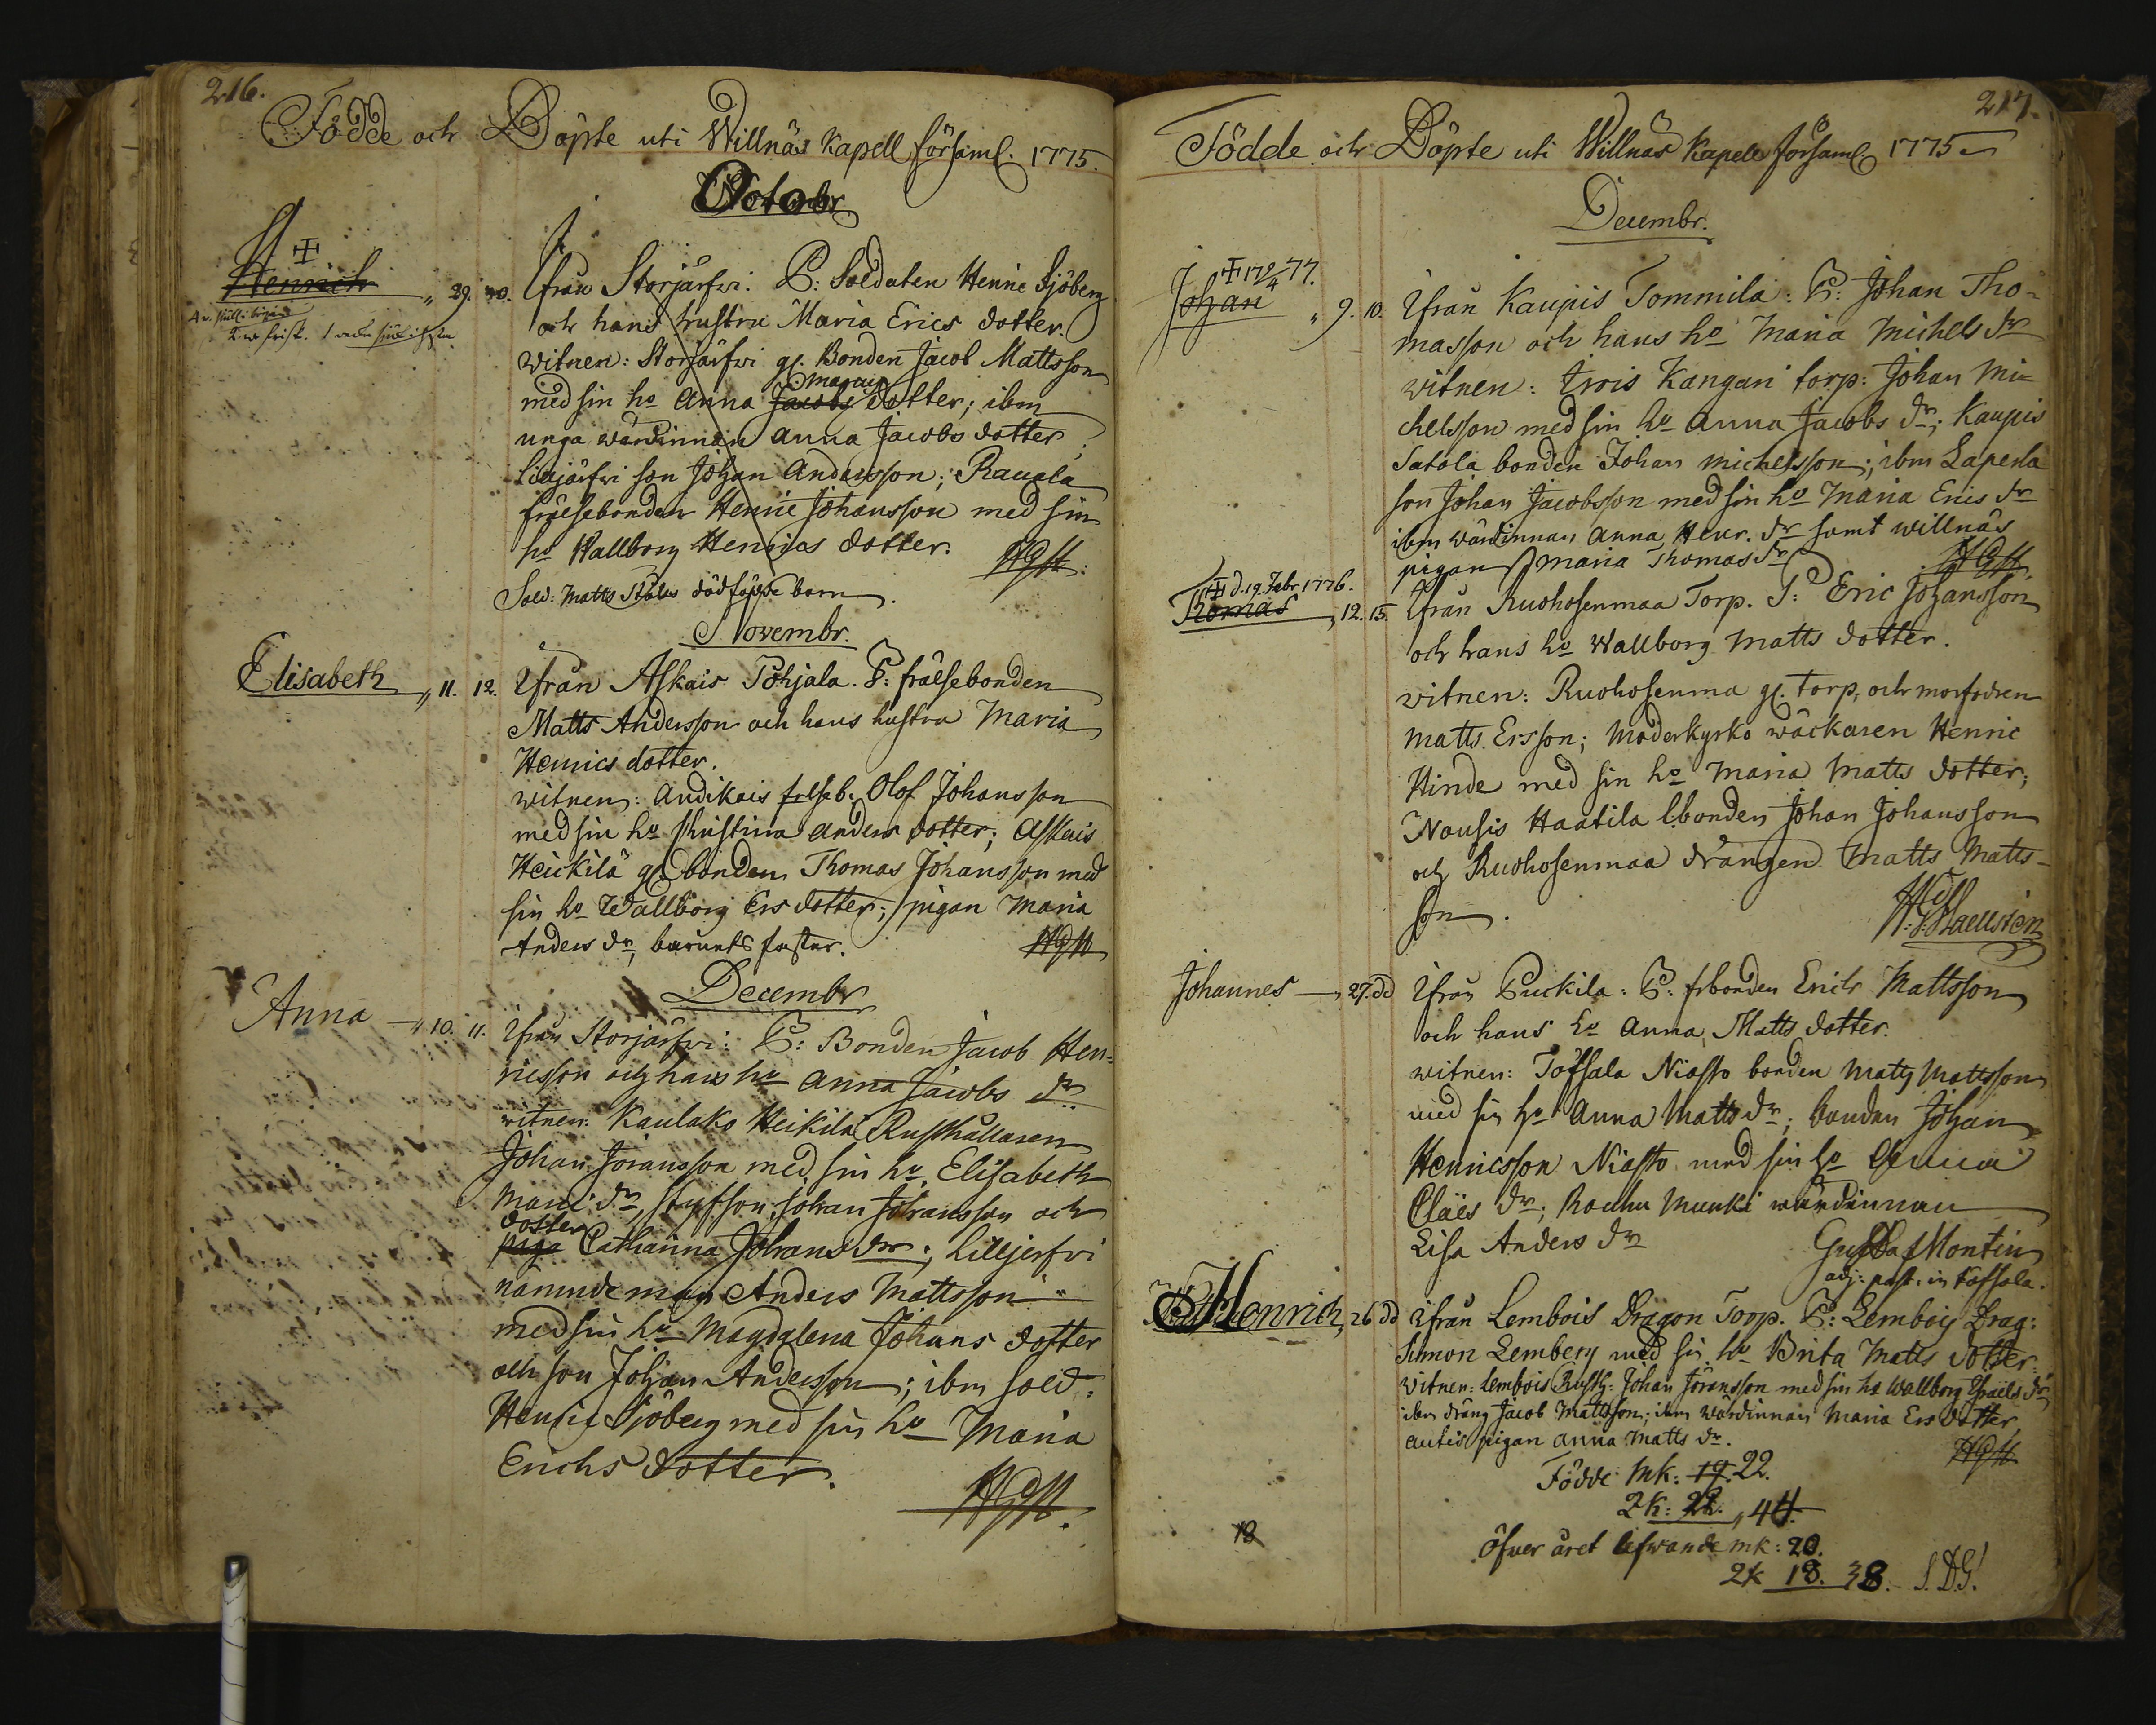 216.
Födde och Döpte uti Willnäs Kapell församl. 1775.
Octobr
Henrich „ 29. 30. Ifrån Storjärfwi. P: Soldaten Henric Sjöberg
och hans hustru Maria Erics dotter.
witnen: Storjärfwi gl. Bonden Jacob Mattsson
med sin ho Anna Jacobs dotter; ibm
unga wärdinnan Anna Jacobs dotter;
son Johan Andersson; Rauala
frälsebonden Henric Johansson med sin
ho Wallborg Henrics dotter.
Sold: Matts Ståls dödfödde barn.
Novembr.
Elisabeth „ 11. 12. Ifrån Askais Pohjala. P: frälsebonden
Matts Andersson och hans hustru Maria
Henrics dotter.
witnen: Andikais frelseb. Olof Johansson
med sin ho Christina Anders dotter; Askais
Heickilä gl. bonden Thomas Johansson med
sin ho Wallborg Ers dotter; pigan Maria
Anders dr, barnets faster.
Decembr
Anna „ 10. 11. Ifrån Storjärfwi: P: Bonden Jacob Hen-
ricsson och hans ho Anna Jacobs dr.
witnen: Kaulaks Heikilä Rusthållaren
Johan Joransson med sin ho Elisabeth
dr, styfson Johan Johansson och
dotter
piga Catharina Johans dr; Lilljerfwi
nämndeman Anders Mattsson
med sin ho Magdalena Johans dotter
och son Johan Andersson; ibm sold:
Henric Sjöberg med sin ho Maria
Erichs dotter.
217.
Födde och Döpte uti Willnäs Kapell församl 1775
Decembr.
Johan „ 9. 10. Ifrån Kaupis Tommila: P: Johan Tho-
masson och hans ho Maria Michels dr
witnen: Kangan torp: Johan Mi-
chelsson med sin ho Anna Jacobs dr; Kaupis
Satola bonden Johan Michelsson; ibm Laperla
son Johan Jacobsson med sin ho Maria Erics dr
ibm wärdinnan Anna Henr. dr samt willnäs
pigan Maria Thomas dr
d. 19. Febr. 1776.
Thomas „ 12. 15. Ifrån Ruohosenmaa Torp. P: Eric Johansson
och hans ho Wallborg Matts dotter.
witnen: Ruohosenma gl. torp. och morfadren
Matts Ersson; Moderkyrko wäckaren Henric
Hinde med sin ho Maria Matts dotter;
Nousis Haatila bonden Johan Johansson
och Ruohosenmaa drängen Matts Matts-
son.
Johannes „ 27. dd Ifrån Puckila: P: frbonden Erich Mattsson
och hans ho Anna Matts dotter.
witnen: Töfsala Niasto bonden Matts Mattsson
med sin ho Anna Matts dr; bonden Johan
Henricsson Niasto med sin ho Anna
Claës dr; Munki wärdinnan
Lisa Anders dr
Gustaf Montin
adj: past. in Töfsala.
Henrich, 26 dd Ifrån Lembois Dragon Torp. P: Lembois Drag:
Simon Lemberg med sin ho Brita Matts dotter.
Witnen: Lembois Rusth: Johan Joransson med sin ho Wallborg dr
ibm dräng Jacob Mattsson; ibm wärdinnan Maria Ers dotter
Autis pigan Anna Matts dr.
Födde Mk: 19. 22.
2k: 22. „ 44.
18
öfver året lefwande mk: 20.
2k 18. 38. S.D.G!